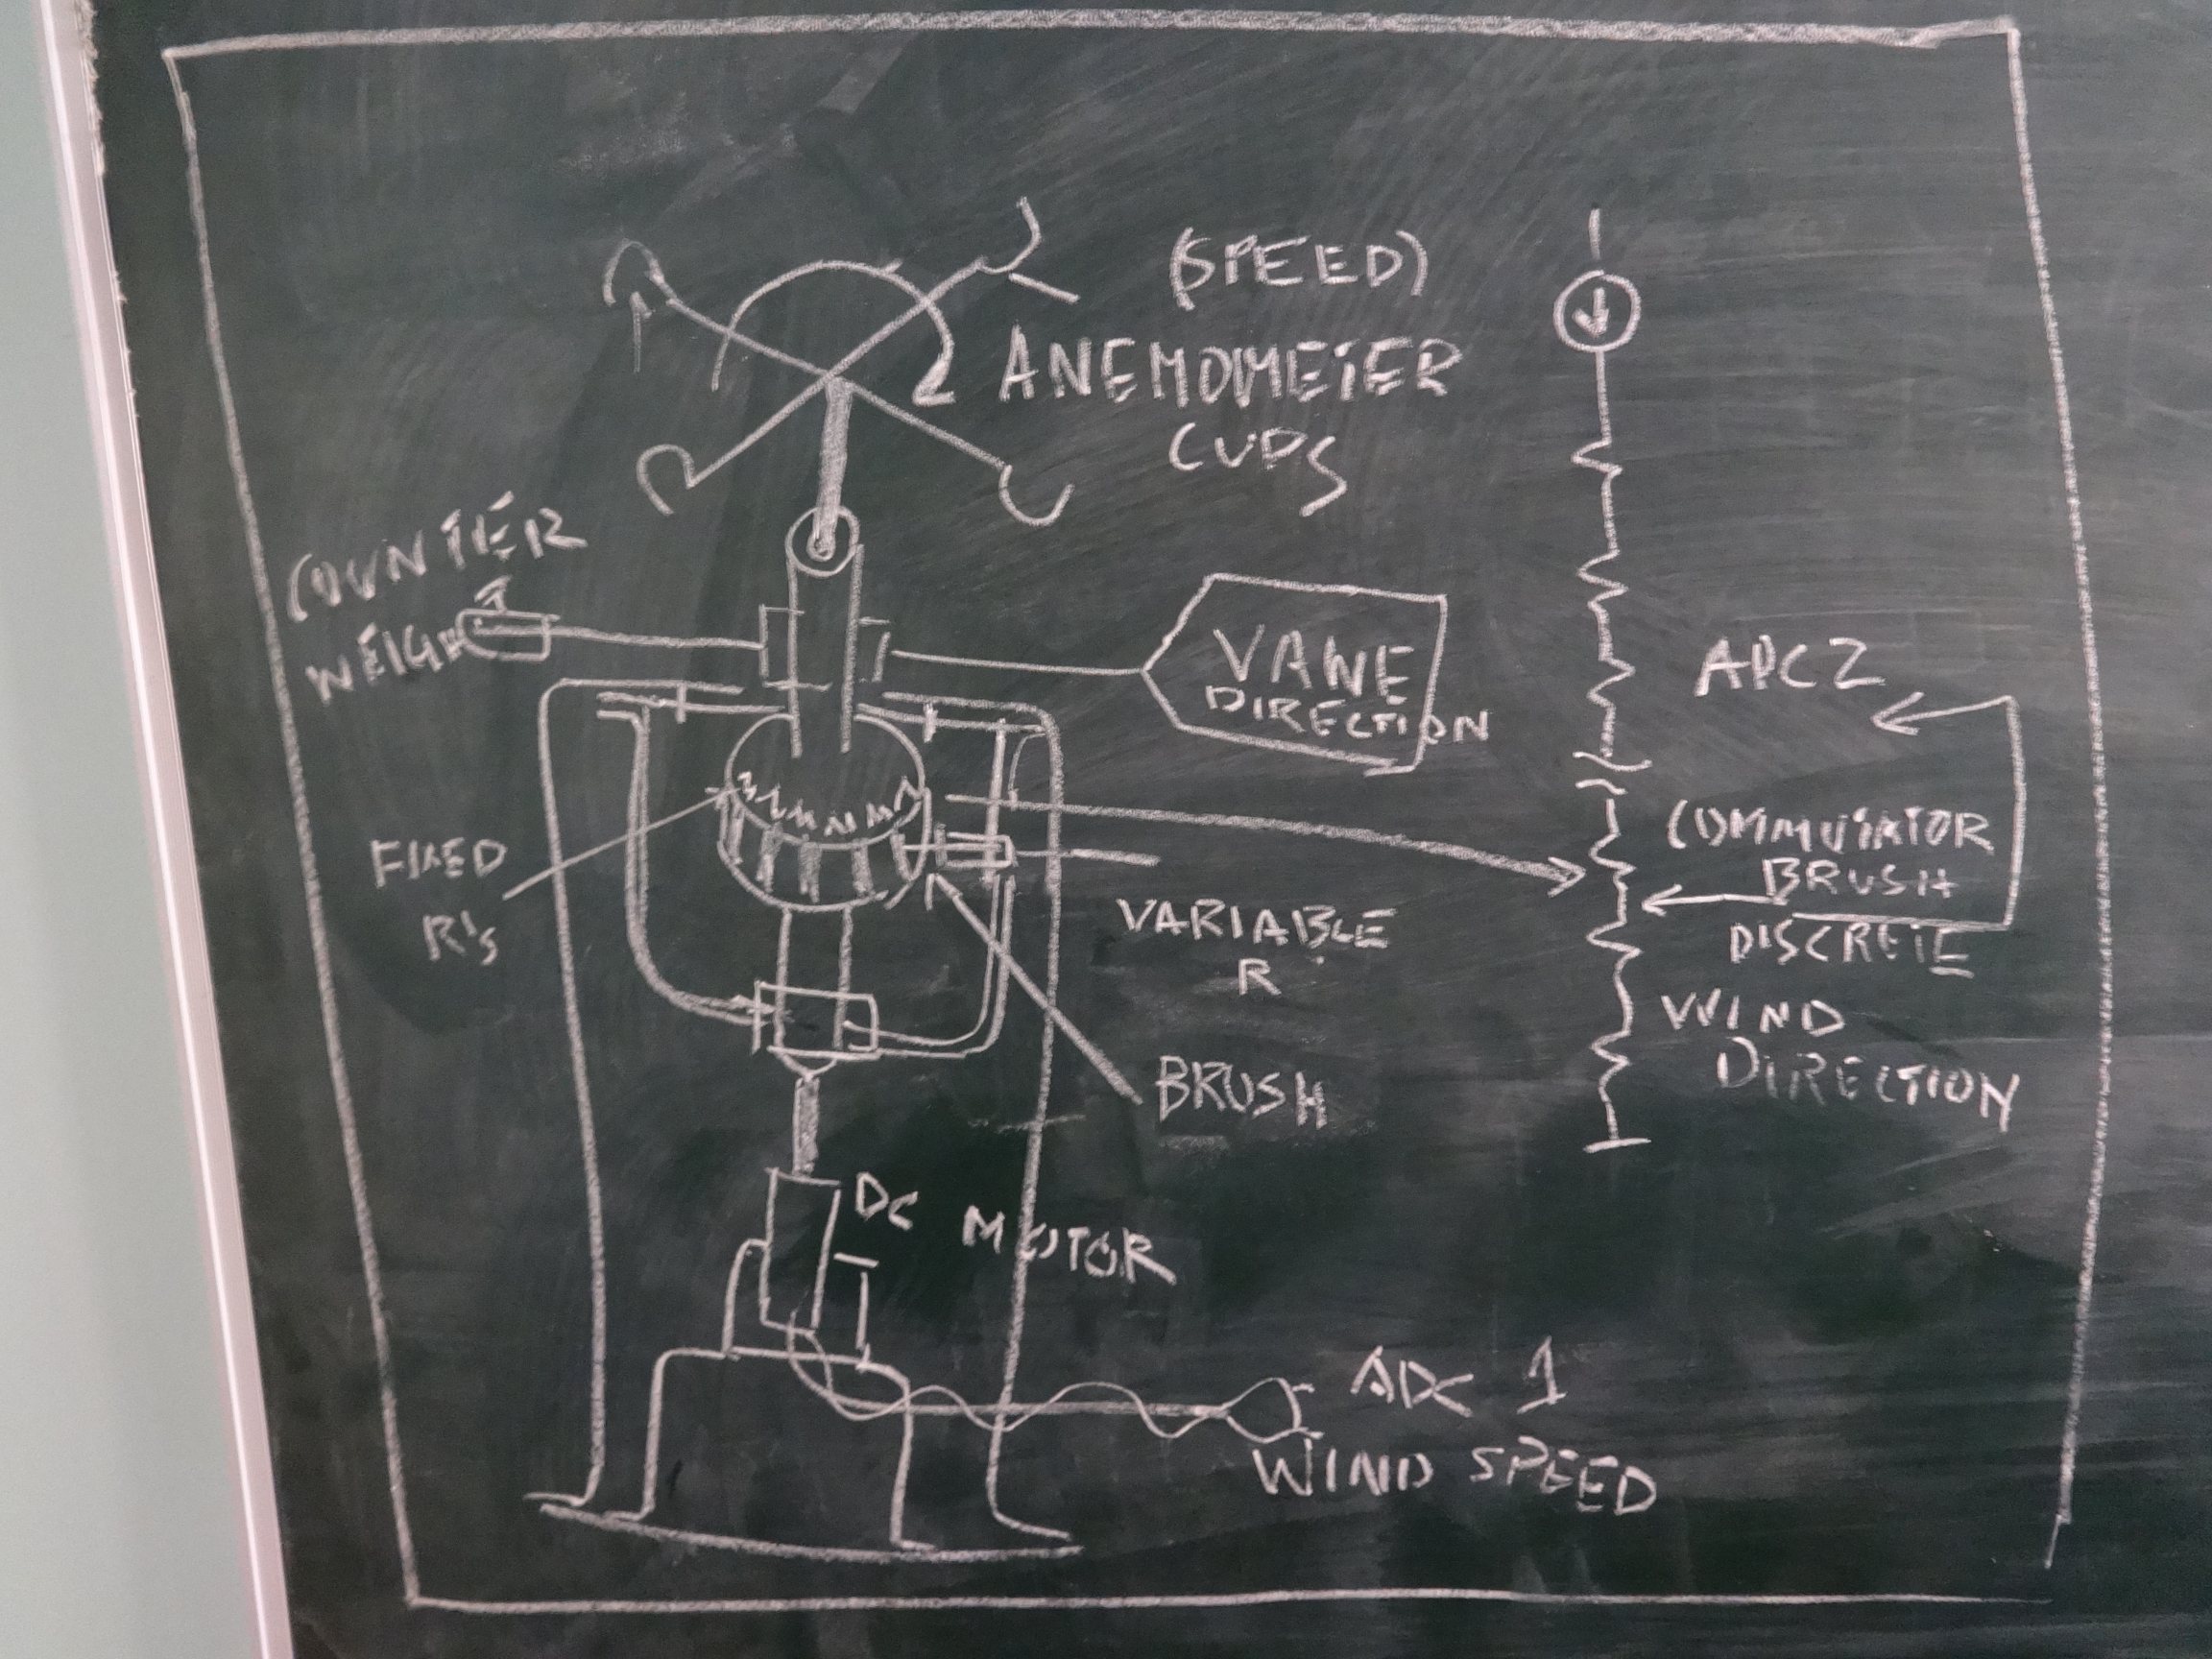 (SPEED)
ANEMOMETER
CUPS
COUNTER
WEIGH
VANE
DIRECTION
ADC2
FIXED
R's
COMMUTATOR
BRUSH
DISCRETE
VARIABLE
R
WIND
DIRECTION
BRUSH
DC MOTOR
ADC 1
WIND SPEED